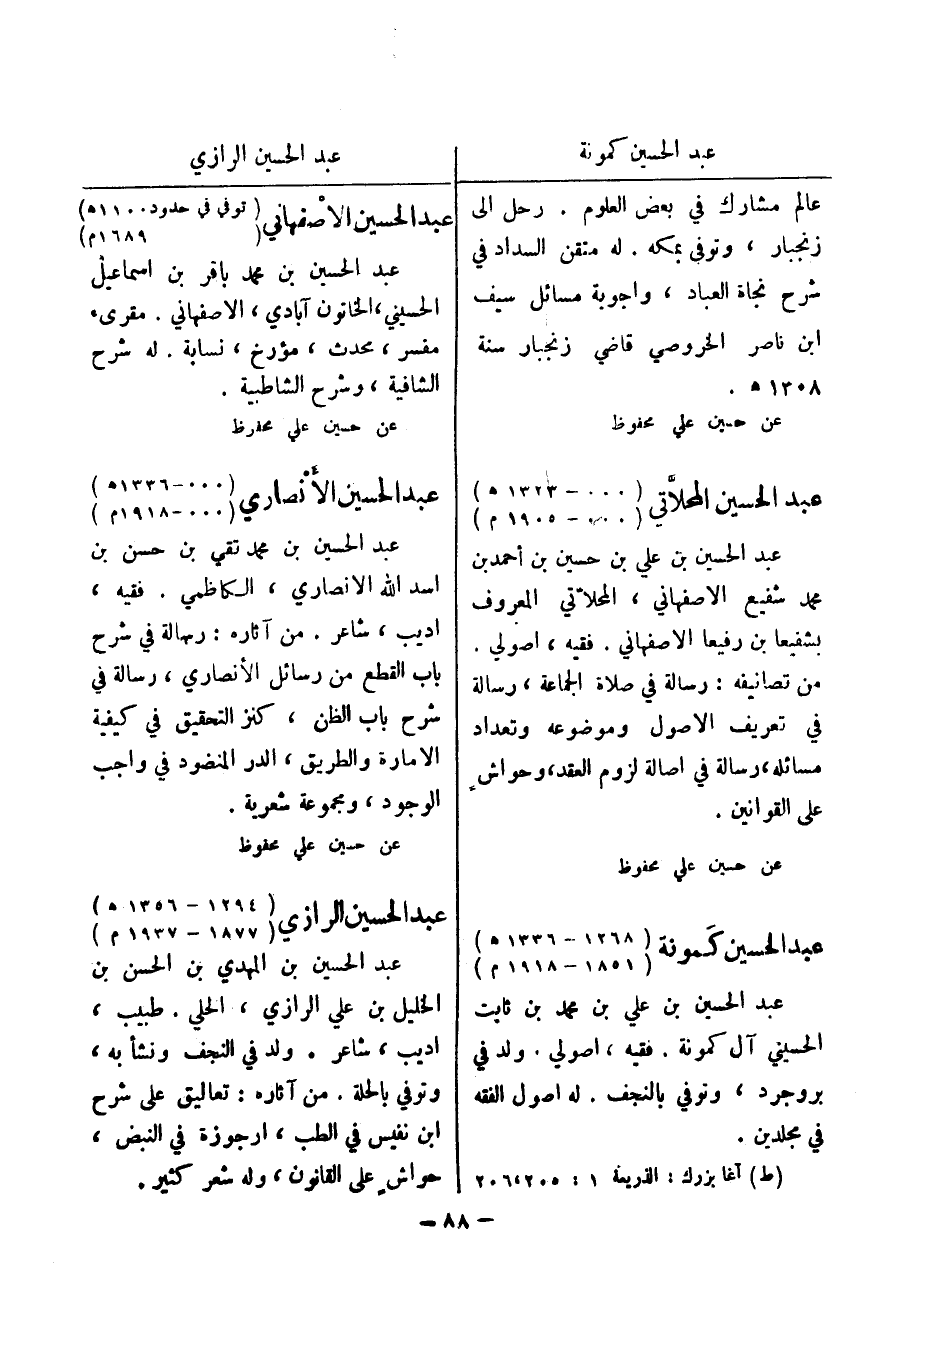 عبد الحسين كمونة
عالم مشارك في بعض العلوم . رحل الى
زنجبار ، وتوفي بمكه . له متقن السداد في
شرح نجاة العباد ، واجوبة مسائل سيف
ابن ناصر الخروصي قاضي زنجبار سنة
١٣٠٨ ه .
عن حسين علي محفوظ
عبد الحسين المحلاَّتي ( ٠٠٠ – ١٣٢٣ ه )
( ٠٠٠ – ١٩٠٥ م )
عبد الحسين بن علي بن حسين بن أحمدبن
محمد شفيع الاصفهاني ، المحلاّتي المعروف
بشفيعا بن رفيعا الاصفهاني . فقيه ، اصولي .
من تصانيفه : رسالة في صلاة الجماعة ، رسالة
في تعريف الاصول وموضوعه وتعداد
مسائله،رسالة في اصالة لزوم العقد،وحواشٍ
على القوانين .
عن حسين علي محفوظ
عبدالحسين كَمونة ( ١٢٦٨ – ١٣٣٦ ه )
( ١٨٥١ – ١٩١٨ م )
عبد الحسين بن علي بن محمد بن ثابت
الحسيني آل كمونة . فقيه ، اصولي . ولد في
بروجرد ، وتوفي بالنجف . له اصول الفقه
في مجلدين .
(ط) آغا بزرك : الذريعة ١ : ٢٠٥،٢٠٦
عبد الحسين الرازي
عبدالحسين الاصْفهاني ( توفي في حدود ١١٠٠ه )
( ١٦٨٩م )
عبد الحسين بن محمد باقر بن اسماعيل
الحسيني،الخاتون آبادي ، الاصفهاني . مقرىء
مفسر ، محدث ، مؤرخ ، نسابة . له شرح
الشافية ، وشرح الشاطبية .
عن حسين علي محفوظ
عبدالحسين الأنْصاري ( ٠٠٠–١٣٣٦ه )
( ٠٠٠–١٩١٨م )
عبد الحسين بن محمد تقي بن حسن بن
اسد الله الانصاري ، الكاظمي . فقيه ،
اديب ، شاعر . من آثاره : رسالة في شرح
باب القطع من رسائل الأنصاري ، رسالة في
شرح باب الظن ، كنز التحقيق في كيفية
الامارة والطريق ، الدر المنضود في واجب
الوجود ، ومجموعة شعرية .
عن حسين علي محفوظ
عبدالحسين الرازي ( ١٢٩٤ – ١٣٥٦ ه )
( ١٨٧٧ – ١٩٣٧ م )
عبد الحسين بن المهدي بن الحسن بن
الخليل بن علي الرازي ، الحلي . طبيب ،
اديب ، شاعر . ولد في النجف ونشأ به ،
وتوفي بالحلة . من آثاره : تعاليق على شرح
ابن نفيس في الطب ، ارجوزة في النبض ،
حواشٍ على القانون ، وله شعر كثير .
– ٨٨ –